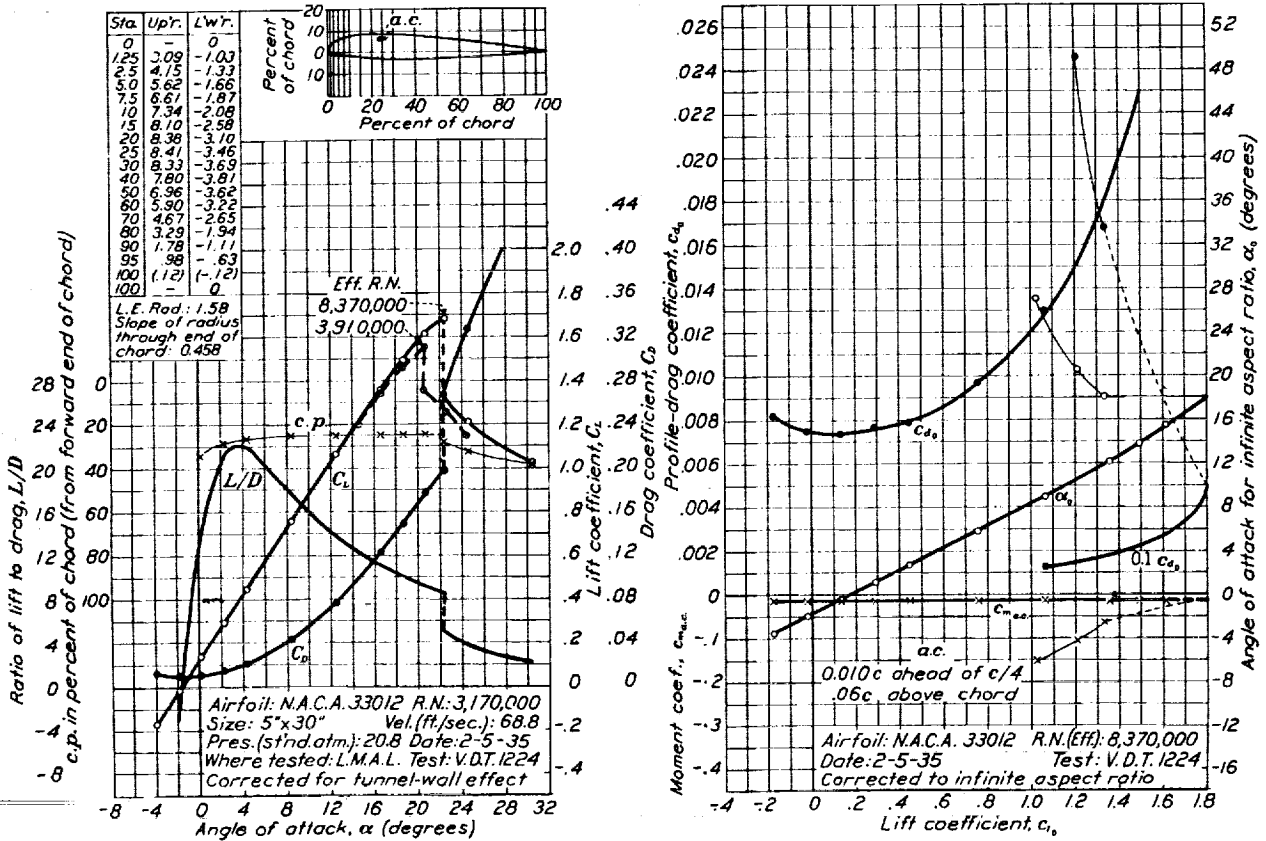 Sta. Up'r. L'w'r.
0 – 0
1.25 3.09 -1.03
2.5 4.15 -1.33
5.0 5.62 -1.66
7.5 6.61 -1.87
10 7.34 -2.08
15 8.10 -2.58
20 8.38 -3.10
25 8.41 -3.46
30 8.33 -3.69
40 7.80 -3.81
50 6.96 -3.62
60 5.90 -3.22
70 4.67 -2.65
80 3.29 -1.94
90 1.78 -1.11
95 .98 -.63
100 (.12) (-.12)
100 – 0
L.E. Rad.: 1.58
Slope of radius
through end of
chord: 0.458
Percent
of chord
20
10
0
10
a.c.
0 20 40 60 80 100
Percent of chord
Ratio of lift to drag, L/D
28
24
20
16
12
8
4
0
-4
-8
c.p. in percent of chord (from forward end of chord)
0
20
40
60
80
100
Eff. R.N.
8,370,000
3,910,000
c.p.
L/D
C_L
C_D
2.0
1.8
1.6
1.4
1.2
1.0
.8
.6
.4
.2
0
-.2
-.4
Lift coefficient, C_L
.44
.40
.36
.32
.28
.24
.20
.16
.12
.08
.04
0
Drag coefficient, C_D
Airfoil: N.A.C.A. 33012 R.N.: 3,170,000
Size: 5"x30" Vel.(ft/sec.): 68.8
Pres.(st'nd.atm.): 20.8 Date: 2-5-35
Where tested: L.M.A.L. Test: V.D.T. 1224
Corrected for tunnel-wall effect
-8 -4 0 4 8 12 16 20 24 28 32
Angle of attack, α (degrees)
Profile-drag coefficient, c_d₀
.026
.024
.022
.020
.018
.016
.014
.012
.010
.008
.006
.004
.002
0
Moment coef., c_m a.c.
-.1
-.2
-.3
-.4
c_d₀
α₀
0.1 c_d₀
c_m a.c.
a.c.
0.010 c ahead of c/4
.06c above chord
52
48
44
40
36
32
28
24
20
16
12
8
4
0
-4
-8
-12
-16
Angle of attack for infinite aspect ratio, α₀ (degrees)
Airfoil: N.A.C.A. 33012 R.N.(Eff.): 8,370,000
Date: 2-5-35 Test: V.D.T. 1224
Corrected to infinite aspect ratio
-.4 -.2 0 .2 .4 .6 .8 1.0 1.2 1.4 1.6 1.8
Lift coefficient, c_l₀